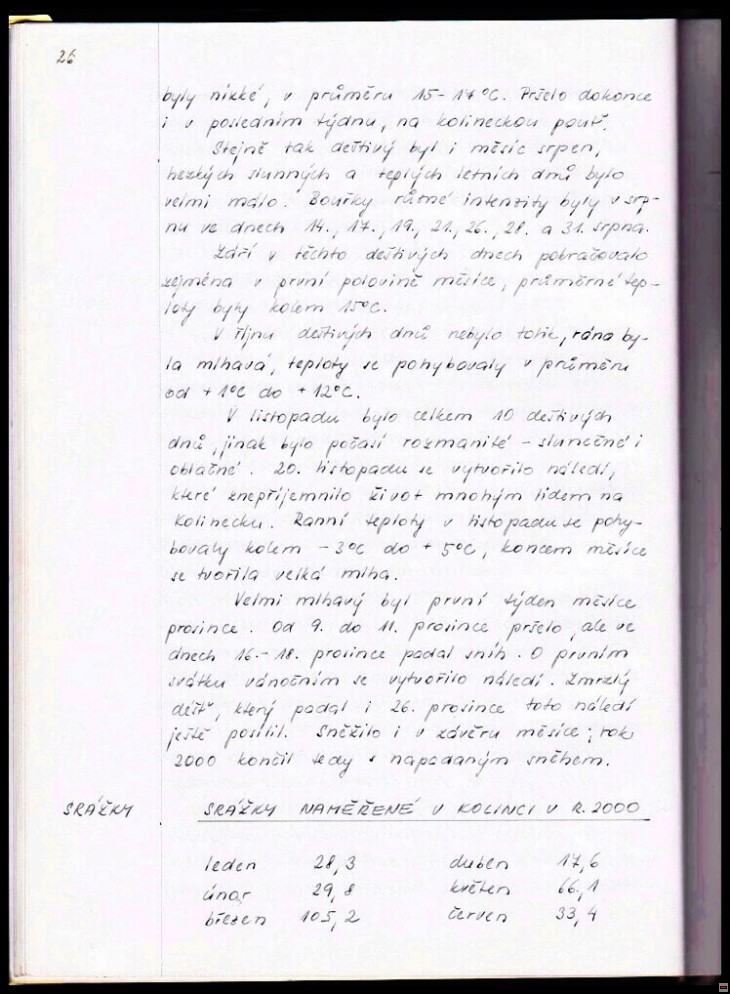 26
byly nízké, v průměru 15-17°C. Pršelo dokonce
i v posledním týdnu, na kolineckou pouť.
Stejně tak deštivý byl i měsíc srpen,
hezkých slunných a teplých letních dnů bylo
velmi málo. Bouřky různé intenzity byly v srp-
nu ve dnech 14., 17., 19., 21., 26., 28. a 31. srpna.
Září v těchto deštivých dnech pokračovalo
zejména v první polovině měsíce, průměrné tep-
loty byly kolem 15°C.
V říjnu deštivých dnů nebylo tolik, rána by-
la mlhavá, teploty se pohybovaly v průměru
od +1°C do +12°C.
V listopadu bylo celkem 10 deštivých
dnů, jinak bylo počasí rozmanité - slunečné i
oblačné. 20. listopadu se vytvořilo náledí,
které znepříjemnilo život mnohým lidem na
Kolinecku. Ranní teploty v listopadu se pohy-
bovaly kolem -3°C do +5°C, koncem měsíce
se tvořila velká mlha.
Velmi mlhavý byl první týden měsíce
prosince. Od 9. do 11. prosince pršelo, ale ve
dnech 16.-18. prosince padal sníh. O prvním
svátku vánočním se vytvořilo náledí. Zmrzlý
déšť, který padal i 26. prosince toto náledí
ještě posílil. Sněžilo i v závěru měsíce, rok
2000 končil tedy s napadaným sněhem.
SRÁŽKY SRÁŽKY NAMĚŘENÉ V KOLINCI V R. 2000
leden 28,3 duben 17,6
únor 29,8 květen 66,1
březen 105,2 červen 33,4